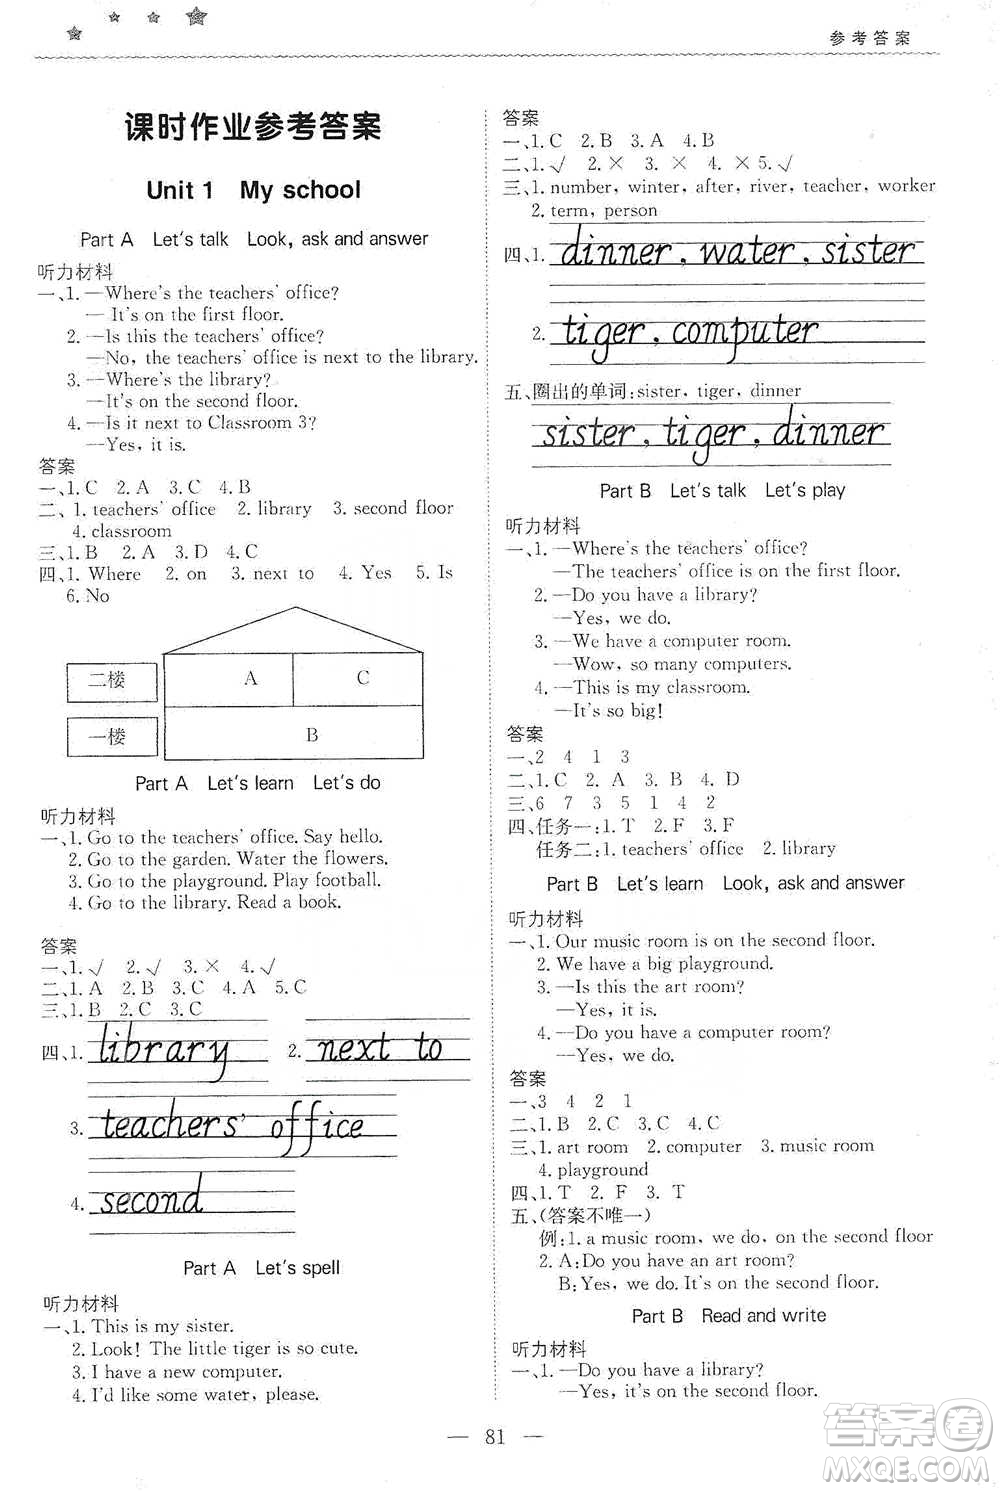 参考答案
课时作业参考答案
Unit 1 My school
Part A Let's talk Look, ask and answer
听力材料
一、1. —Where's the teachers' office?
— It's on the first floor.
2. —Is this the teachers' office?
—No, the teachers' office is next to the library.
3. —Where's the library?
—It's on the second floor.
4. —Is it next to Classroom 3?
—Yes, it is.
答案
一、1. C 2. A 3. C 4. B
二、1. teachers' office 2. library 3. second floor
4. classroom
三、1. B 2. A 3. D 4. C
四、1. Where 2. on 3. next to 4. Yes 5. Is
6. No
二楼 A C
一楼 B
Part A Let's learn Let's do
听力材料
一、1. Go to the teachers' office. Say hello.
2. Go to the garden. Water the flowers.
3. Go to the playground. Play football.
4. Go to the library. Read a book.
答案
一、1. √ 2. √ 3. × 4. √
二、1. A 2. B 3. C 4. A 5. C
三、1. B 2. C 3. C
四、1. library 2. next to
3. teachers' office
4. second
Part A Let's spell
听力材料
一、1. This is my sister.
2. Look! The little tiger is so cute.
3. I have a new computer.
4. I'd like some water, please.
答案
一、1. C 2. B 3. A 4. B
二、1. √ 2. × 3. × 4. × 5. √
三、1. number, winter, after, river, teacher, worker
2. term, person
四、1. dinner, water, sister
2. tiger, computer
五、圈出的单词: sister, tiger, dinner
sister, tiger, dinner
Part B Let's talk Let's play
听力材料
一、1. —Where's the teachers' office?
—The teachers' office is on the first floor.
2. —Do you have a library?
—Yes, we do.
3. —We have a computer room.
—Wow, so many computers.
4. —This is my classroom.
—It's so big!
答案
一、2 4 1 3
二、1. C 2. A 3. B 4. D
三、6 7 3 5 1 4 2
四、任务一: 1. T 2. F 3. F
任务二: 1. teachers' office 2. library
Part B Let's learn Look, ask and answer
听力材料
一、1. Our music room is on the second floor.
2. We have a big playground.
3. —Is this the art room?
—Yes, it is.
4. —Do you have a computer room?
—Yes, we do.
答案
一、3 4 2 1
二、1. B 2. C 3. C 4. C
三、1. art room 2. computer 3. music room
4. playground
四、1. T 2. F 3. T
五、(答案不唯一)
例: 1. a music room, we do, on the second floor
2. A: Do you have an art room?
B: Yes, we do. It's on the second floor.
Part B Read and write
听力材料
一、1. —Do you have a library?
—Yes, it's on the second floor.
— 81 —
答案卷
MXQE.COM